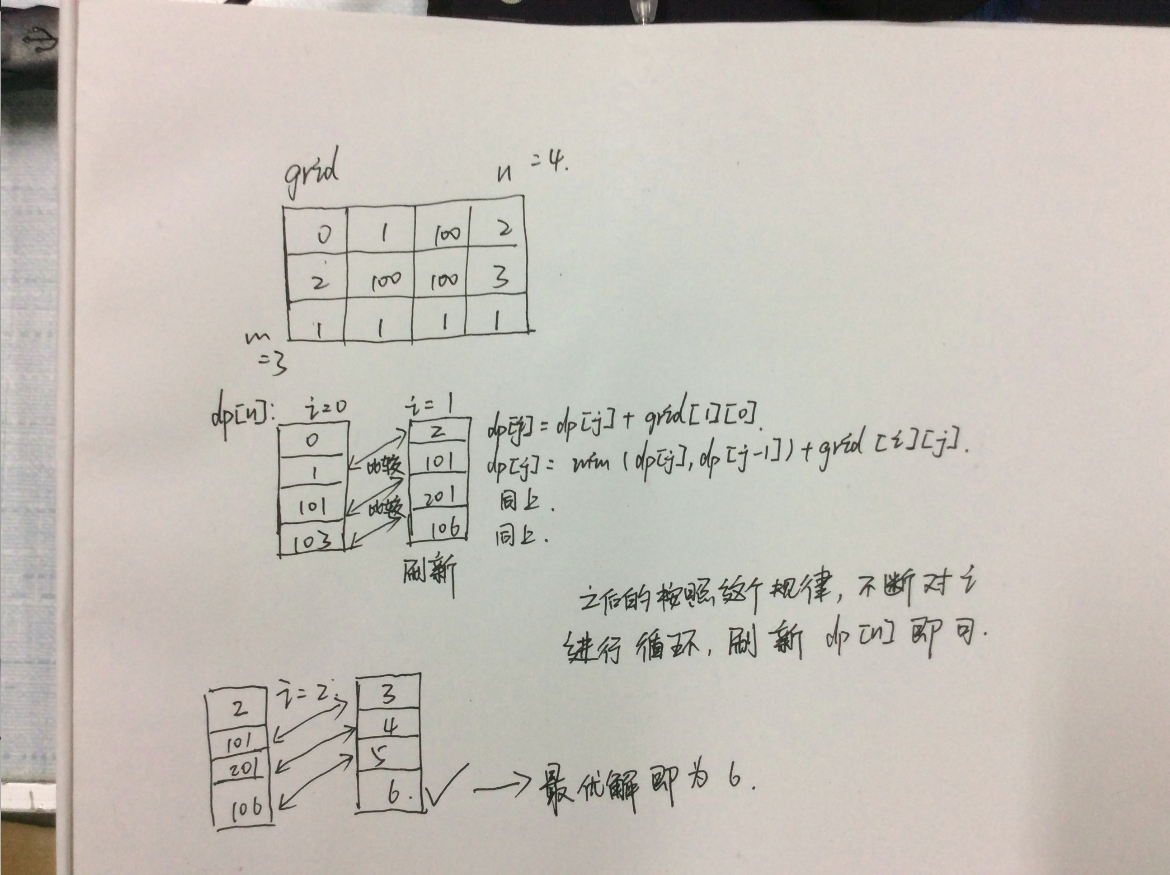 grid n =4.
0 1 100 2
2 100 100 3
1 1 1 1
m
=3
dp[n]: i=0 i=1
0 2 dp[j] = dp[j] + grid[1][0].
1 比较 101 dp[j] = min (dp[j], dp[j-1]) + grid [i][j].
101 比较 201 同上.
103 106 同上.
刷新
之后的按照这个规律, 不断对 i
进行循环, 刷新 dp[n] 即可.
i=2:
2 3
101 4
201 5
106 6. → 最优解即为 6.